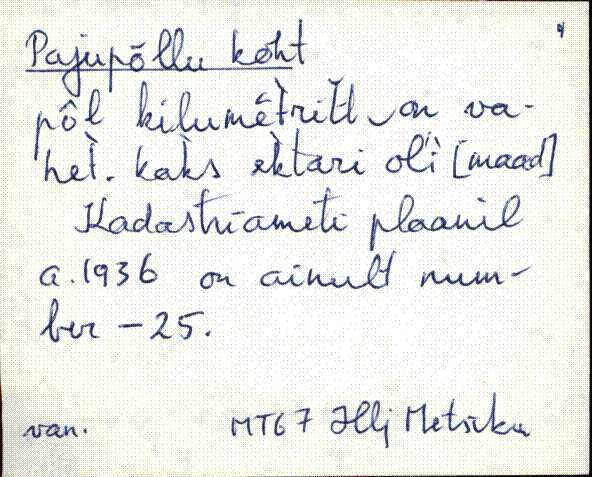 Pajupõllu koht
pôl kilumêtritt on va-
het. kaks ektari ol'i [maad]
Kadastriameti plaanil
a. 1936 on ainult num-
ber – 25.
van. MT67 Hlj Metsiku